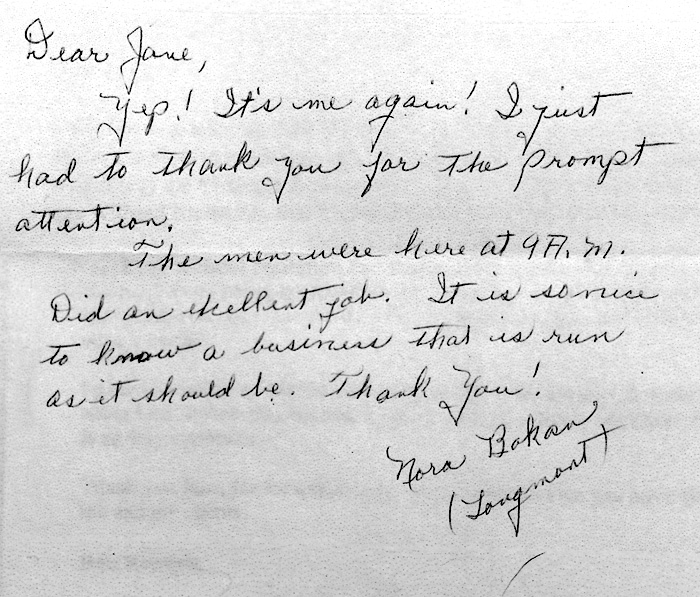 Dear Jane,
Yep! It's me again! I just
had to thank you for the prompt
attention.
The men were here at 9 A.M.
Did an exellent job. It is so nice
to know a business that is run
as it should be. Thank You!
Nora Bokan
(Longmont)